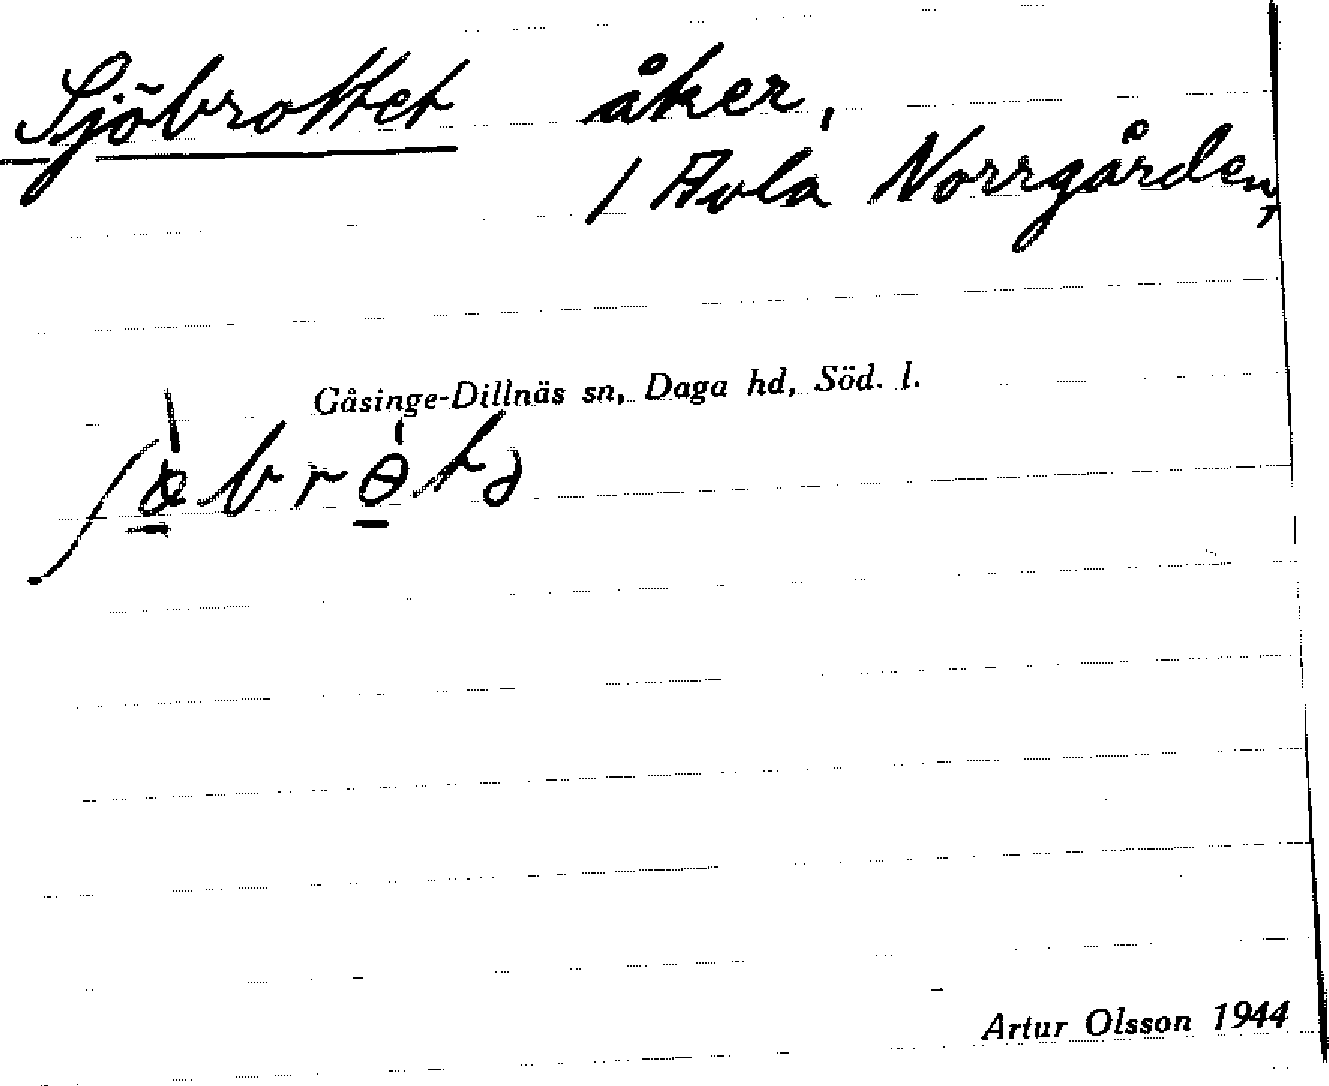 Sjöbrottet åker,
/ Avla Norrgården,
Gåsinge-Dillnäs sn, Daga hd, Söd. l.
Artur Olsson 1944